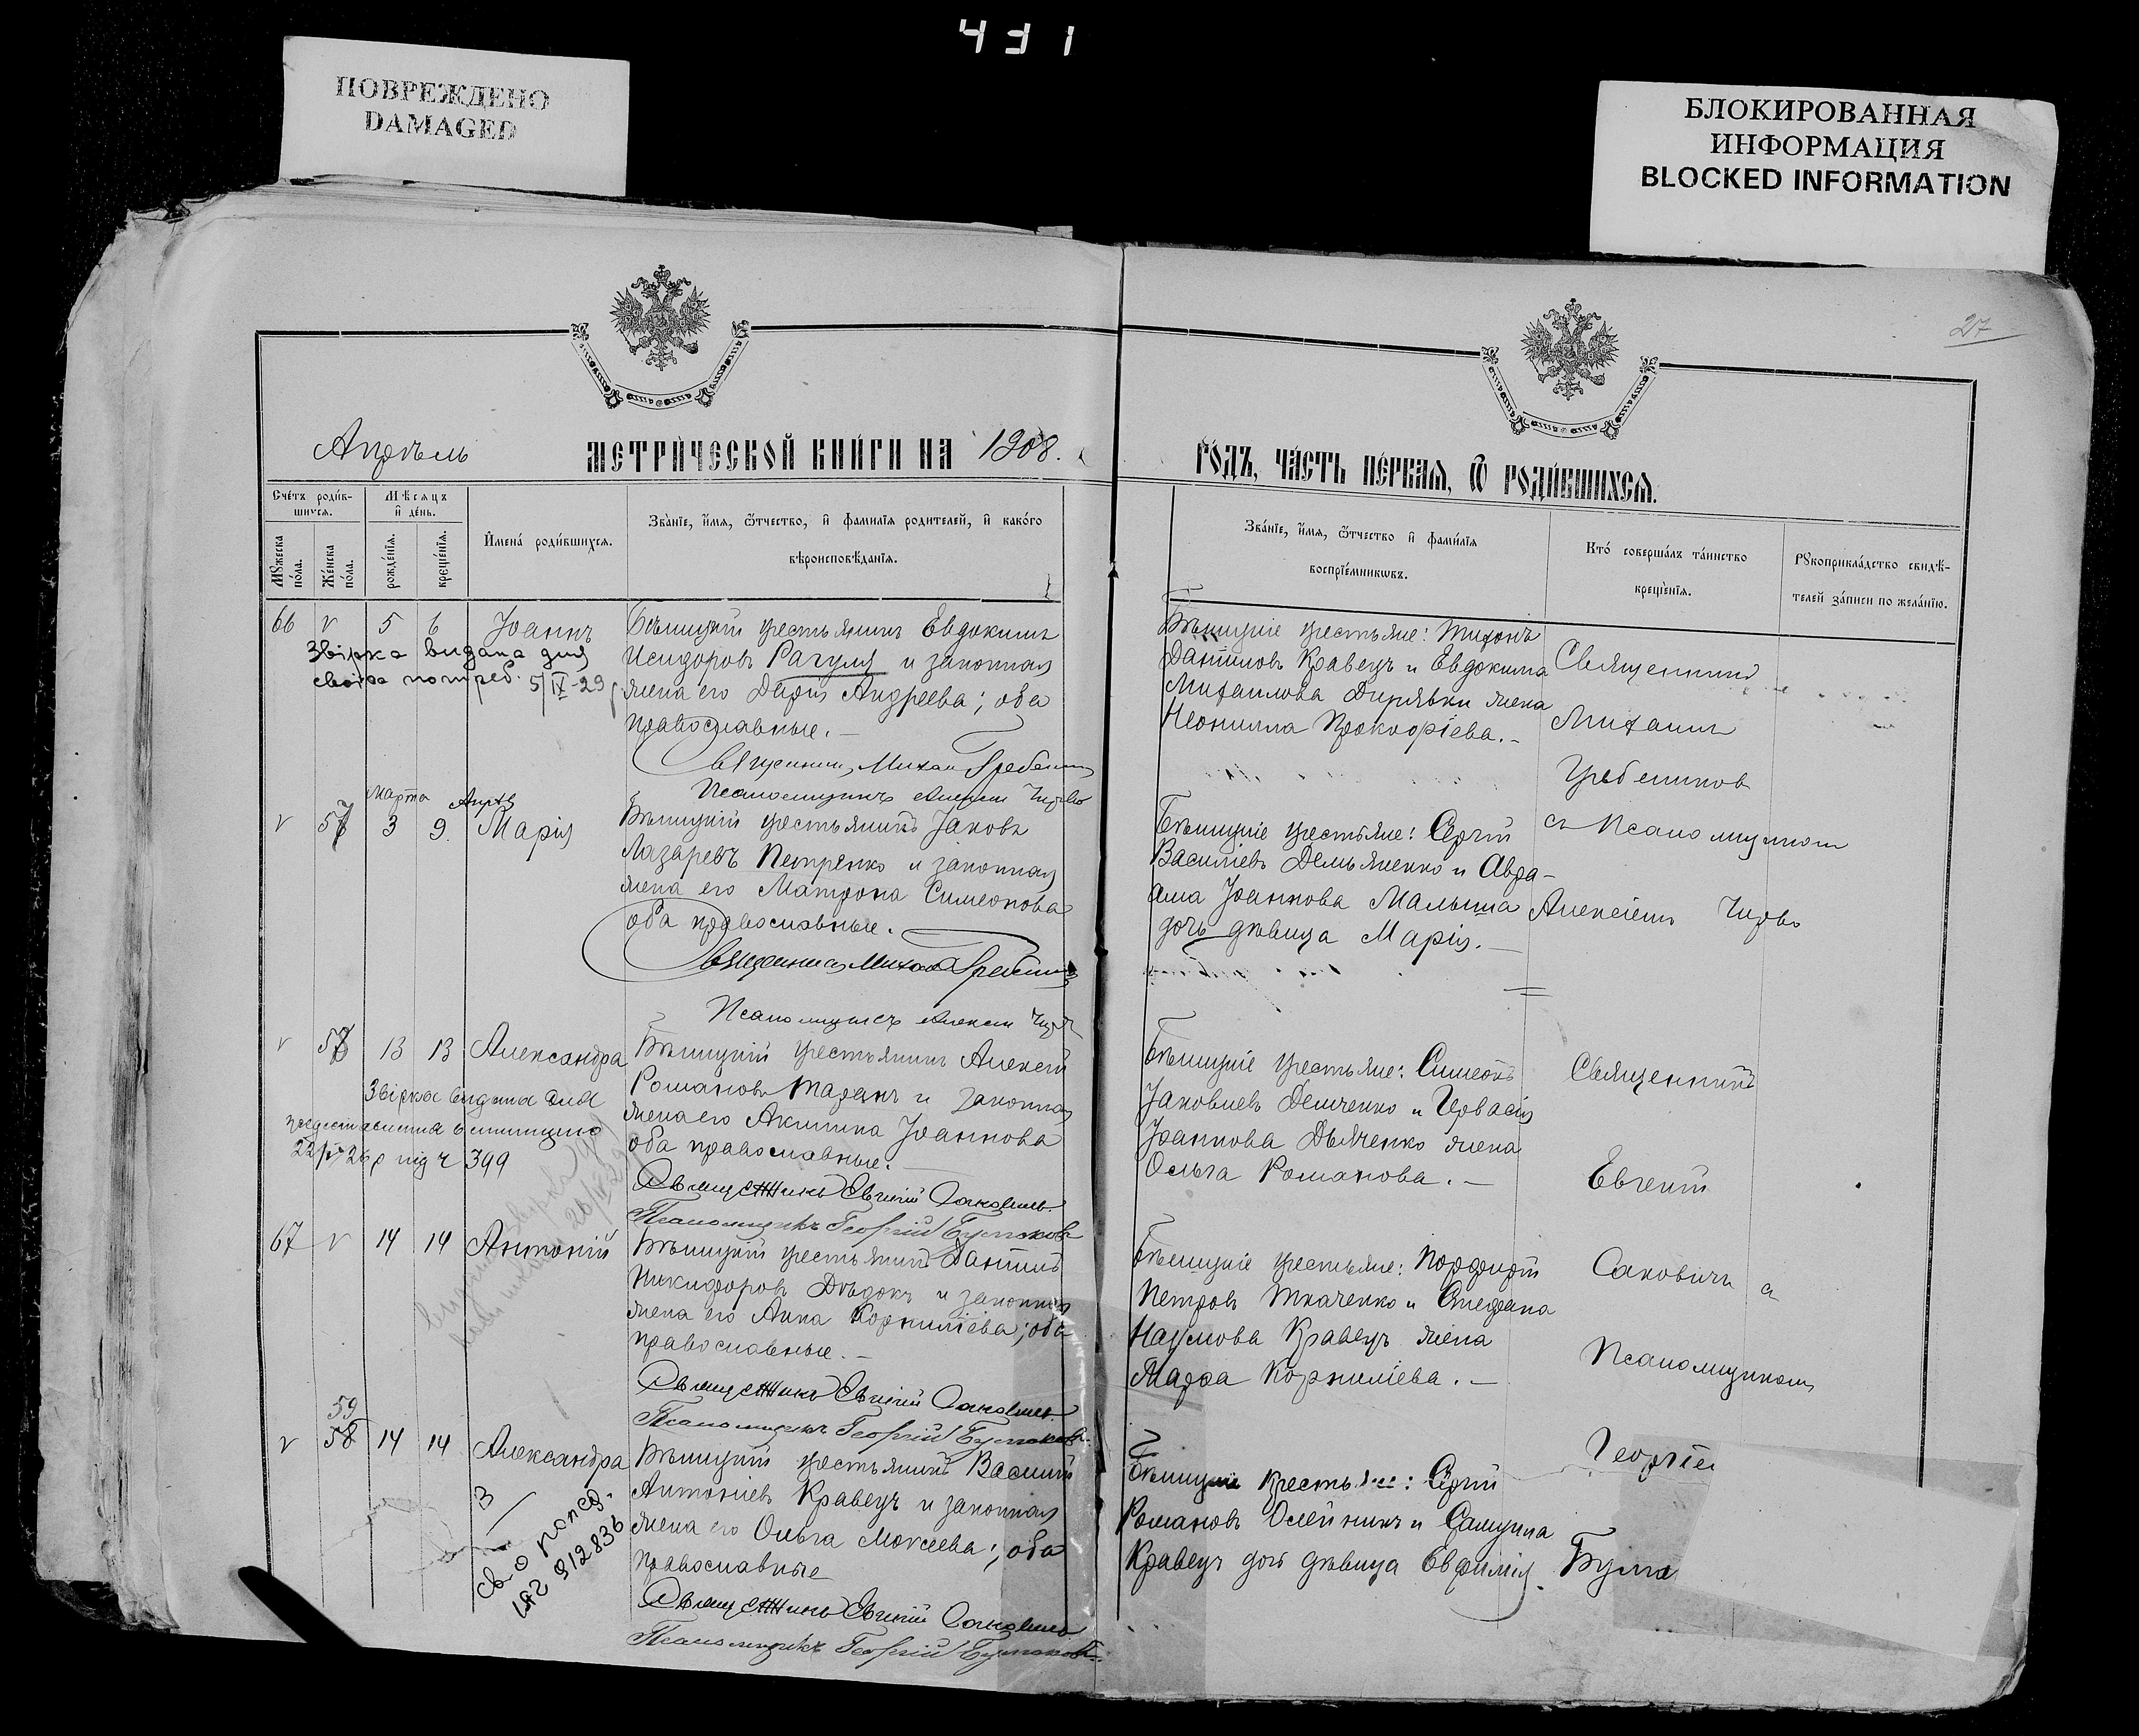 431
ПОВРЕЖДЕНО
DAMAGED
БЛОКИРОВАННАЯ
ИНФОРМАЦИЯ
BLOCKED INFORMATION
27
Апрѣль
МЕТРИ́ЧЕСКОЙ КНИ́ГИ НА 1908.
ГО́ДЪ, ЧА́СТЬ ПЕ́РВАЯ, Ѽ РОДИ́ВШИХСЯ.
Сче́тъ роди́в-
шихся.
Мѣ́сяцъ
и҆ де́нь.
Му́жеска
по́ла.
Же́нска
по́ла.
рожде́нїя.
креще́нїя.
И҆мена̀ роди́вшихся.
Зва́нїе, и҆́мя, ѻ҆́тчество, и҆ фами́лїя роди́телей, и҆ како́гѡ
вѣроисповѣ́данїя.
Зва́нїе, и҆́мя, ѻ҆́тчество и҆ фами́лїя
воспрїе́мникѡвъ.
Кто̀ соверша́лъ та́инство
креще́нїя.
Рукоприкла́дство свидѣ́-
телей за́писи по жела́нїю.
66 v 5 6 Іоаннъ
Звірка видана для
своіх потреб. 5/IV-29
крестьянинъ Евдокимъ
Исидоровъ Рагуля и законная
жена его Дарія Андреева; оба
православные.
Священник Михаил Гребенник
Псаломщикъ Алексей
крестьяне: Тихонъ
Даниловъ Кравецъ и Евдокима
Михаилова жена
Неонилла Прокофіева.
Священник
Михаил
Гребеников
съ Псаломщиком
Алексіем
Марта Апрѣ
v 57 3 9 Марія
крестьянинъ Іаковъ
Лазаревъ Петренко и законная
жена его Матрона Симеонова
оба православные.
Священник Михаил Гребенник
Псаломщикъ Алексей
крестьяне: Сергій
Василіевъ Демьяненко и Авра-
ама Іоаннова Малыша
дочь дѣвица Марія.
v 58 13 13 Александра
Звірка видана для
22/IV 26 р під ч 399
крестьянинъ Алексей
Романовъ Таранъ и законная
жена его Акилина Іоаннова
оба православные.
Священникъ Евгеній Саковичъ
Псаломщикъ Георгій Булгаковъ
крестьяне: Симеонъ
Іаковлевъ Демченко и Гервасія
Іоаннова Дьяченко жена
Ольга Романова.
Священникъ
Евгеній
Саковичъ съ
Псаломщикомъ
Георгіе
Булга
67 v 14 14 Антоній
крестьянинъ Даніилъ
Никифоровъ Дѣдокъ и законная
жена его Анна Корниліева; оба
православные.
Священникъ Евгеній Саковичъ
Псаломщикъ Георгій Булгаковъ
крестьяне: Порфирій
Петровъ Ткаченко и Стефана
Наумова Кравецъ жена
Марфа Корниліева.
59
v 58 14 14 Александра
912836
крестьянинъ Василій
Антоніевъ Кравецъ и законная
жена его Ольга Моисеева; оба
православные
Священникъ Евгеній Саковичъ
Псаломщикъ Георгій Булгаковъ
крестьяне: Сергій
Романовъ Олейникъ и Самуила
Кравецъ дочь дѣвица Евфимія.